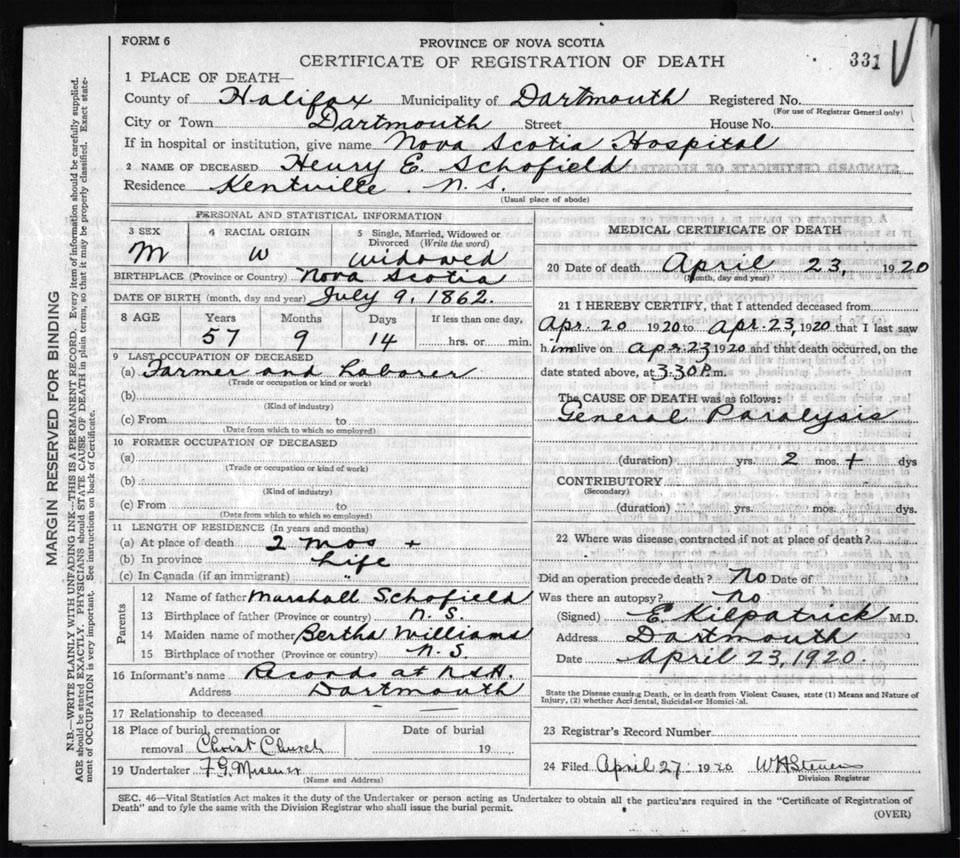 FORM 6
PROVINCE OF NOVA SCOTIA
CERTIFICATE OF REGISTRATION OF DEATH
331
1 PLACE OF DEATH—
County of Halifax Municipality of Dartmouth Registered No.
(For use of Registrar General only)
City or Town Dartmouth Street House No.
If in hospital or institution, give name Nova Scotia Hospital
2 NAME OF DECEASED Henry E. Schofield
Residence Kentville N.S.
(Usual place of abode)
PERSONAL AND STATISTICAL INFORMATION
3 SEX 4 RACIAL ORIGIN 5 Single, Married, Widowed or Divorced (Write the word)
M W Widowed
BIRTHPLACE (Province or Country) Nova Scotia
DATE OF BIRTH (month, day and year) July 9, 1862.
8 AGE Years Months Days If less than one day,
57 9 14 hrs. or min.
9 LAST OCCUPATION OF DECEASED
(a) Farmer and Laborer
(Trade or occupation or kind of work)
(b)
(Kind of industry)
(c) From to
(Date from which to which so employed)
10 FORMER OCCUPATION OF DECEASED
(a)
(Trade or occupation or kind of work)
(b)
(Kind of industry)
(c) From to
(Date from which to which so employed)
11 LENGTH OF RESIDENCE (In years and months)
(a) At place of death 2 mos +
(b) In province Life
(c) In Canada (if an immigrant) "
Parents
12 Name of father Marshall Schofield
13 Birthplace of father (Province or country) N.S.
14 Maiden name of mother Bertha Williams
15 Birthplace of mother (Province or country) N.S.
16 Informant's name Records at N.S.H.
Address Dartmouth
17 Relationship to deceased
18 Place of burial, cremation or removal Christ Church
Date of burial 19
19 Undertaker F.G. Misener
(Name and Address)
MEDICAL CERTIFICATE OF DEATH
20 Date of death April 23, 1920
(Month, day and year)
21 I HEREBY CERTIFY, that I attended deceased from
Apr. 20 1920 to Apr. 23, 1920 that I last saw
him alive on Apr 23 1920 and that death occurred, on the
date stated above, at 3.30 P.m.
The CAUSE OF DEATH was as follows:
General Paralysis
(duration) yrs. 2 mos. + dys
CONTRIBUTORY
(Secondary)
(duration) yrs. mos. dys.
22 Where was disease contracted if not at place of death?
Did an operation precede death? No Date of
Was there an autopsy? No
(Signed) E. Kilpatrick M.D.
Address Dartmouth
Date April 23, 1920.
State the Disease causing Death, or in death from Violent Causes, state (1) Means and Nature of
Injury, (2) whether Accidental, Suicidal or Homicidal.
23 Registrar's Record Number
24 Filed April 27 1920 W H Stevens
Division Registrar
SEC. 46—Vital Statistics Act makes it the duty of the Undertaker or person acting as Undertaker to obtain all the particulars required in the "Certificate of Registration of
Death" and to fyle the same with the Division Registrar who shall issue the burial permit.
(OVER)
MARGIN RESERVED FOR BINDING
N.B.—WRITE PLAINLY WITH UNFADING INK—THIS IS A PERMANENT RECORD. Every item of information should be carefully supplied.
AGE should be stated EXACTLY. PHYSICIANS should STATE CAUSE OF DEATH in plain terms, so that it may be properly classified. Exact state-
ment of OCCUPATION is very important. See instructions on back of Certificate.